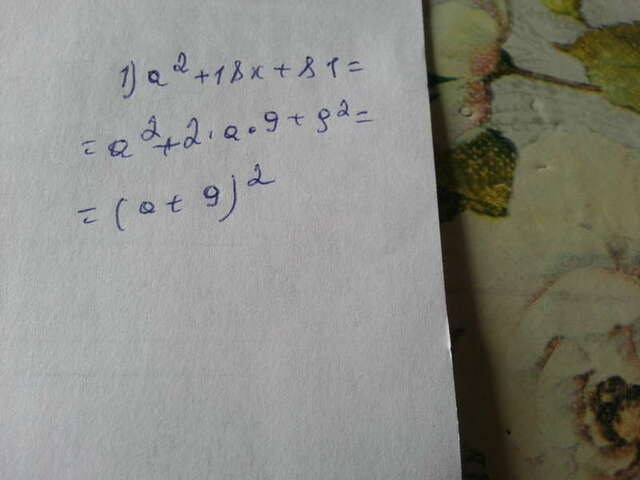 1) a² + 18x + 81 =
= a² + 2 · a · 9 + 9² =
= (a + 9)²